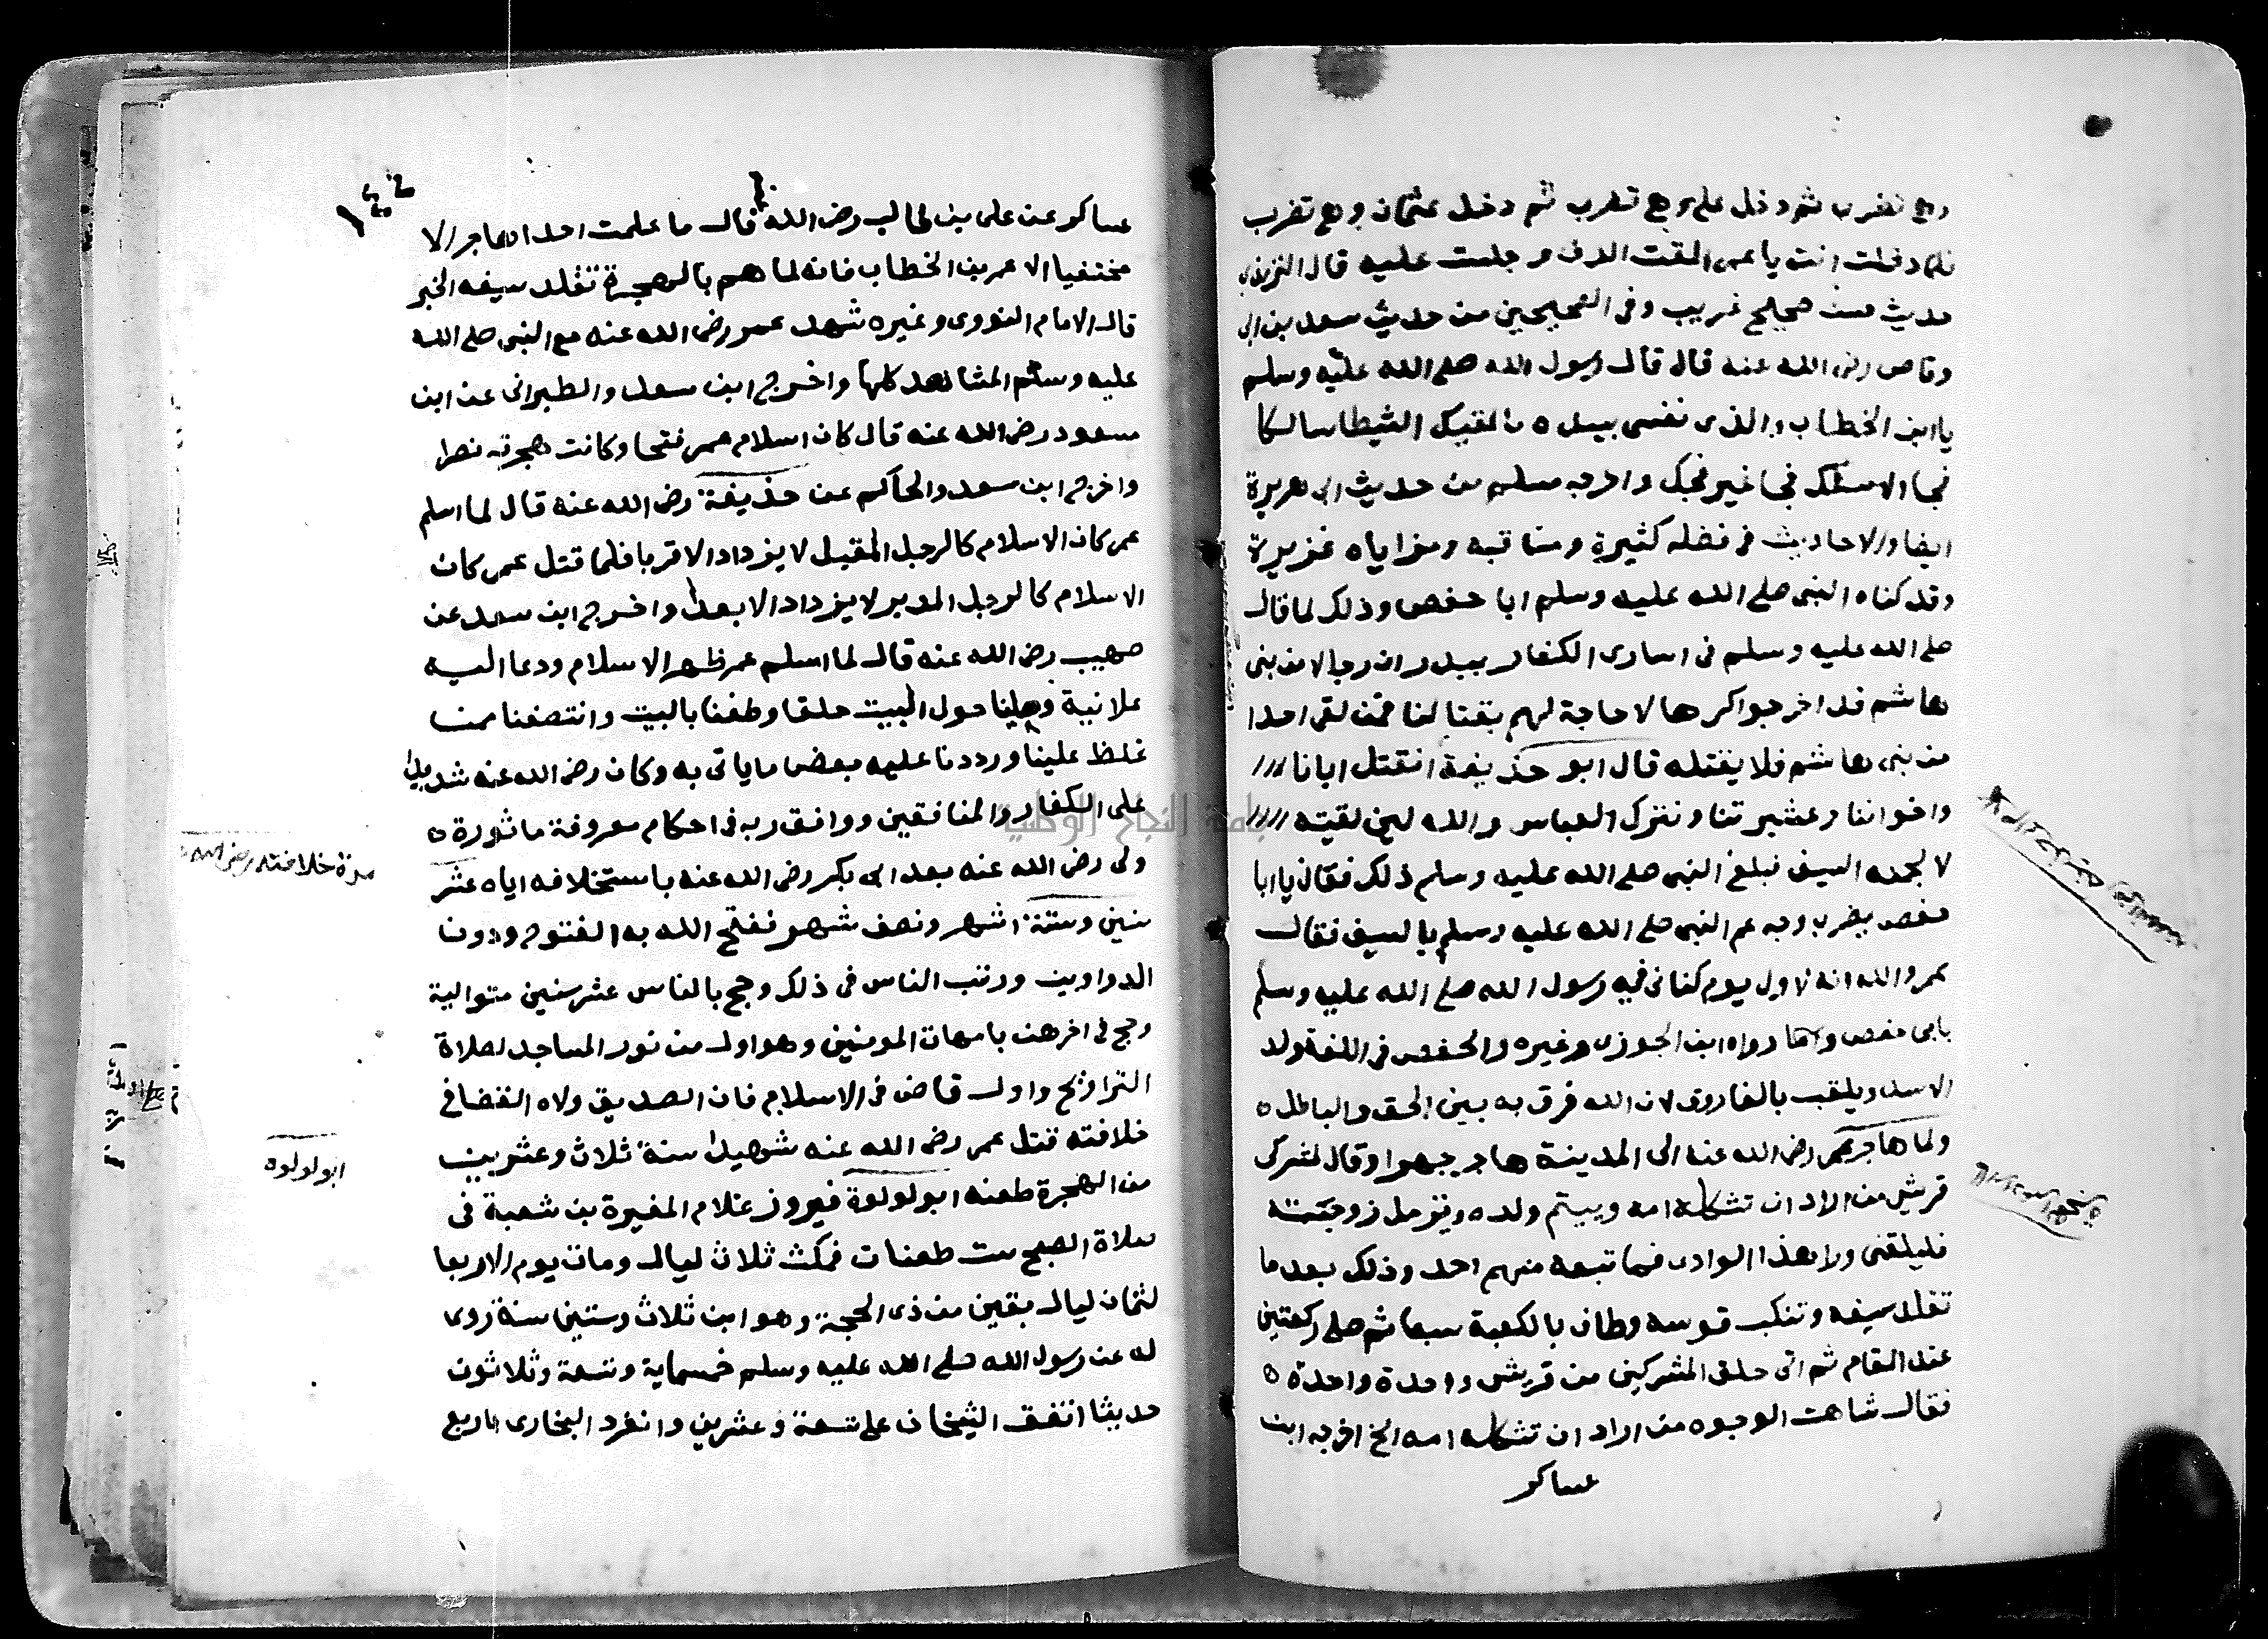 وهى تضرب ثم دخل على وهى تضرب ثم دخل عثمان وهى تضرب
فلما دخلت انت يا عمر القت الدف وجلست عليه قال الترمذى
حديث حسن صحيح غريب وفى الصحيحين من حديث سعد بن ابى
وقاص رضى الله عنه قال قال رسول الله صلى الله عليه وسلم
يا ابن الخطاب والذى نفسى بيده ما لقيك الشيطان سالكا
فجا الا سلك فجا غير فجك واخرجه مسلم من حديث ابى هريرة
ايضا والاحاديث فى فضله كثيرة ومناقبه ومزاياه غزيرة
وقد كناه النبى صلى الله عليه وسلم ابا حفص وذلك لما قال
صلى الله عليه وسلم فى اسارى الكفار ببدر ان رجالا من بنى
هاشم قد اخرجوا كرها لا حاجة لهم بقتالنا فمن لقى احدا
من بنى هاشم فلا يقتله قال ابو حذيفة انقتل ابانا
واخواننا وعشيرتنا ونترك العباس والله لين لقيته
لالجمنه السيف فبلغ النبى صلى الله عليه وسلم ذلك فقال يا ابا
حفص يضرب وجه عم النبى صلى الله عليه وسلم بالسيف فقال
عمر والله انه لاول يوم كنانى فيه رسول الله صلى الله عليه وسلم
بابى حفص رواه ابن الجوزى وغيره والحفص فى اللغة ولد
الاسد ويلقب بالفاروق لان الله فرق به بين الحق والباطل ه
ولما هاجر عمر رضى الله عنه الى المدينة هاجر جهرا وقال لمشركى
قريش من اراد ان تثكله امه وييتم ولده وترمل زوجته
فليلقنى ورا هذا الوادى فما تبعه منهم احد وذلك بعد ما
تقلد سيفه وتنكب قوسه وطاف بالكعبة سبعا ثم صلى ركعتين
عند المقام ثم اتى حلق المشركين من قريش واحدة واحدة ه
فقال شاهت الوجوه من اراد ان تثكله امه الخ اخرجه ابن
عساكر
١٤٢
عساكر عن على بن ابى طالب رضى الله قال ما علمت احدا هاجر الا
مختفيا الا عمر بن الخطاب فانه لما هم بالهجرة تقلد سيفه الخبر
قال الامام النووى وغيره شهد عمر رضى الله عنه مع النبى صلى الله
عليه وسلم المشاهد كلها واخرج ابن سعد والطبرانى عن ابن
مسعود رضى الله عنه قال كان اسلام عمر فتحا وكانت هجرته نصرا
واخرج ابن سعد والحاكم عن حذيفة رضى الله عنه قال لما اسلم
عمر كان الاسلام كالرجل المقبل لا يزداد الا قربا فلما قتل عمر كان
الاسلام كالرجل المدبر لا يزداد الا بعدا واخرج ابن سعد عن
صهيب رضى الله عنه قال لما اسلم عمر ظهر الاسلام ودعا اليه
علانية وجلسنا حول البيت حلقا وطفنا بالبيت وانتصفنا ممن
غلظ علينا ورددنا عليه بعض ما ياتى به وكان رضى الله عنه شديدا
على الكفار والمنافقين ووافق ربه فى احكام معروفة ماثورة ه
ولى رضى الله عنه بعد ابى بكر رضى الله عنه باستخلافه اياه عشر
سنين وستة اشهر ونصف شهر ففتح الله به الفتوح ودون
الدواوين ورتب الناس فى ذلك وحج بالناس عشر سنين متوالية
وحج فى اخرهن بامهات المومنين وهو اول من نور المساجد لصلاة
التراويح واول قاض فى الاسلام فان الصديق ولاه القضا فى
خلافته قتل عمر رضى الله عنه شهيدا سنة ثلاث وعشرين
من الهجرة طعنه ابو لولوة فيروز غلام المغيرة بن شعبة فى
صلاة الصبح ست طعنات فمكث ثلاث ليال ومات يوم الاربعا
لثمان ليال بقين من ذى الحجة وهو ابن ثلاث وستين سنة روى
له عن رسول الله صلى الله عليه وسلم خمسماية وتسعة وثلاثون
حديثا اتفق الشيخان على تسعة وعشرين وانفرد البخارى باربع
مدة خلافته رضى الله عنه
ابو لولوه
جامعة النجاح الوطنية